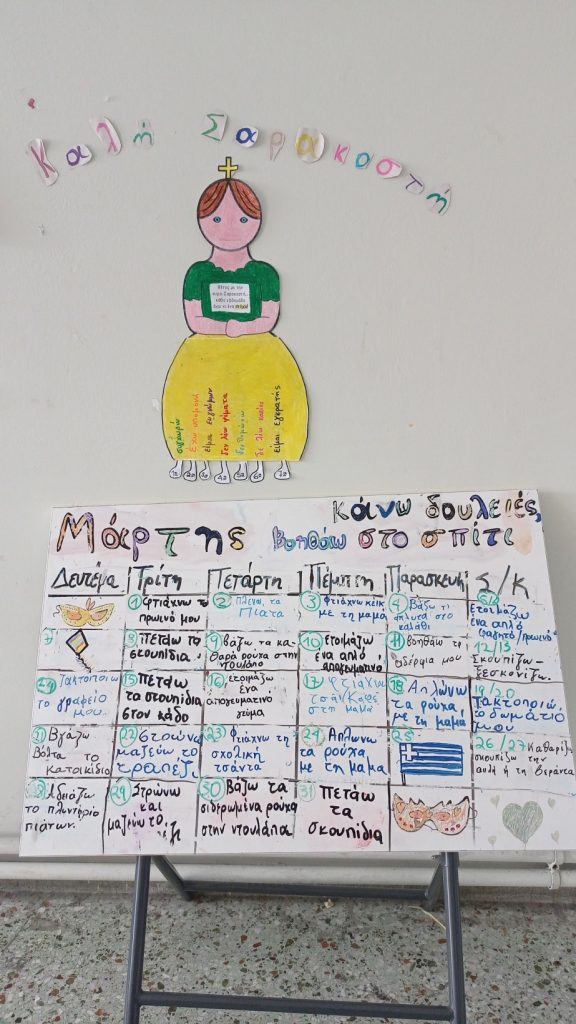 Καλή Σαρακοστή
Φέτος με την
κυρα-Σαρακοστή...
κάθε εβδομάδα
έχω κι ένα στόχο!
συγχωρώ
Έχω υπομονή
είμαι ευγνώμων
Δεν λέω ψέματα
δεν θυμώνω
Είμαι Εγκρατής
1η 2α 3η 4η 5η 6η 7η
κάνω δουλειές,
Μάρτης βοηθάω στο σπίτι
Δευτέρα Τρίτη Πετάρτη Πέμπτη Παρασκευή Σ/Κ
1 Φτιάχνω το
πρωινό μου
2 Πλένω τα
Πιατα
3 Φτιάχνω κέικ
με τη μαμά
4 Βάζω τα
άπλυτα στο
καλάθι
5/6
Ετοιμάζω
ένα απλό
φαγητό/πρωινό
7
8 Πετάω τα
σκουπίδια.
9 Βάζω τα κα-
θαρά ρούχα στην
ντουλάπα
10 ετοιμάζω
ένα απλό
απογευματινό
11 βοηθάω τα
αδέρφια μου
12/13
Σκουπίζω-
ξεσκονίζω.
Τακτοποιώ
το γραφείο
μου.
15 Πετάω
τα σκουπίδια
στον κάδο
16 ετοιμάζω
ένα
απογευματινό
γεύμα
17 Φτιάχνω
στη μαμά
18 Απλώνω
τα ρούχα
με τη μαμά
19/20
Τακτοποιώ
το δωμάτιό
μου
21 Βγάζω
βόλτα το
κατοικίδιο
22 Στρώνω
μαζεύω το
τραπέζι
23 Φτιάχνω τη
σχολική
τσάντα
24 Απλωνω
τα ρούχα
με τη μαμά
25
26/27 Καθαρίζω
σκουπίζω την
αυλή ή τη βεράντα
28 Αδειάζω
το πλυντήριο
πιάτων.
29 Στρώνω
και
μαζεύω το
30 Βάζω τα
σιδερωμένα ρούχα
στην ντουλάπα
31 Πετάω
τα
σκουπίδια